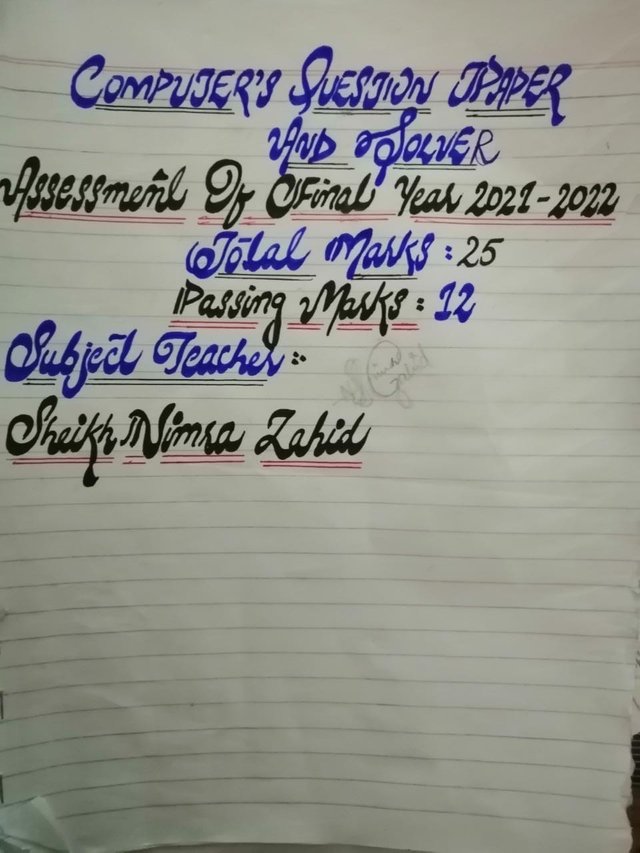 COMPUTER'S QUESTION PAPER
AND SOLVER
Assessment Of Final Year 2021-2022
Total Marks : 25
Passing Marks : 12
Subject Teacher :-
Sheikh Nimra Zahid